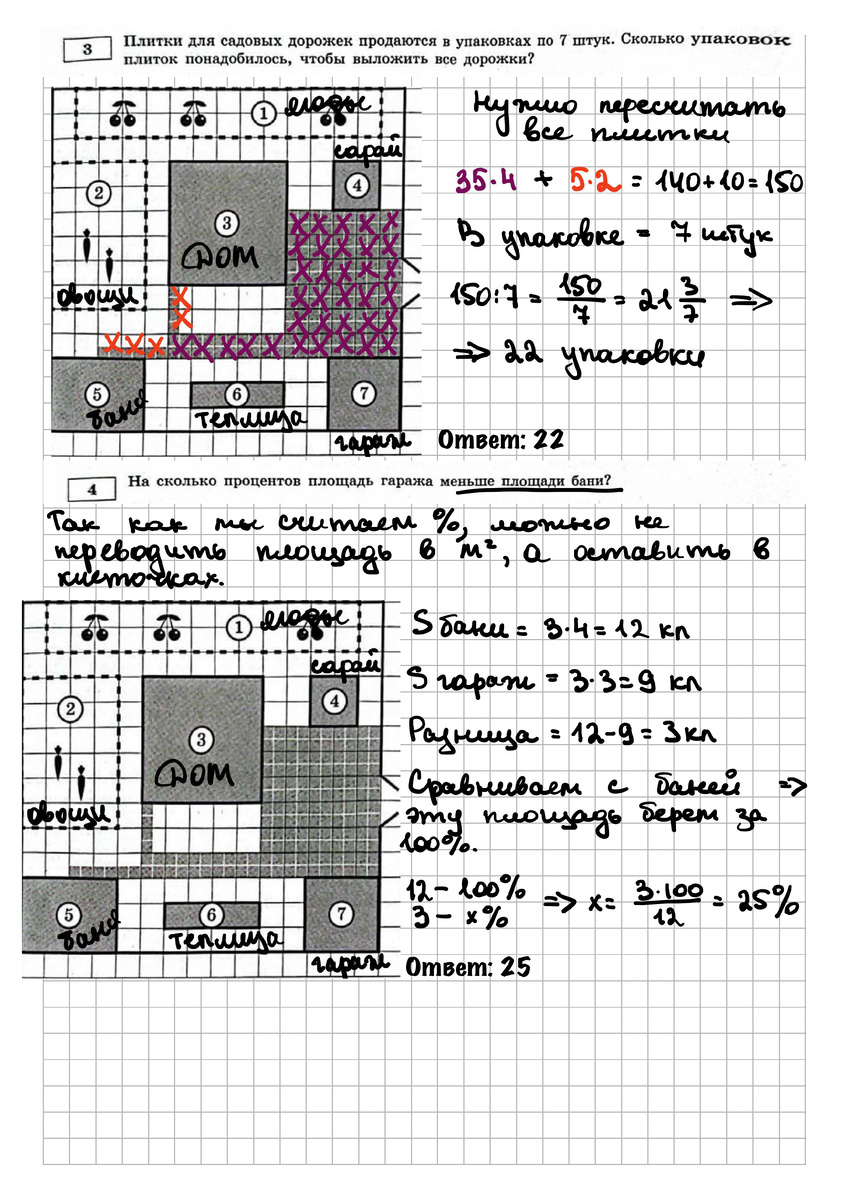 3 Плитки для садовых дорожек продаются в упаковках по 7 штук. Сколько упаковок
плиток понадобилось, чтобы выложить все дорожки?
1 ягоды
сарай
2
4
3
Дом
овощи
5
6
7
баня
теплица
гараж
Нужно пересчитать
все плитки
35·4 + 5·2 = 140+10=150
В упаковке = 7 штук
150:7 = 150/7 = 21 3/7 =>
=> 22 упаковки
Ответ: 22
4 На сколько процентов площадь гаража меньше площади бани?
Так как мы считаем %, можно не
переводить площадь в м², а оставить в
клеточках.
1 ягоды
сарай
2
4
3
Дом
овощи
5
6
7
баня
теплица
гараж
S бани = 3·4=12 кл
S гараж = 3·3=9 кл
Разница = 12-9=3кл
Сравниваем с баней =>
эту площадь берем за
100%.
12 – 100%
3 – x% => x= 3·100/12 = 25%
Ответ: 25